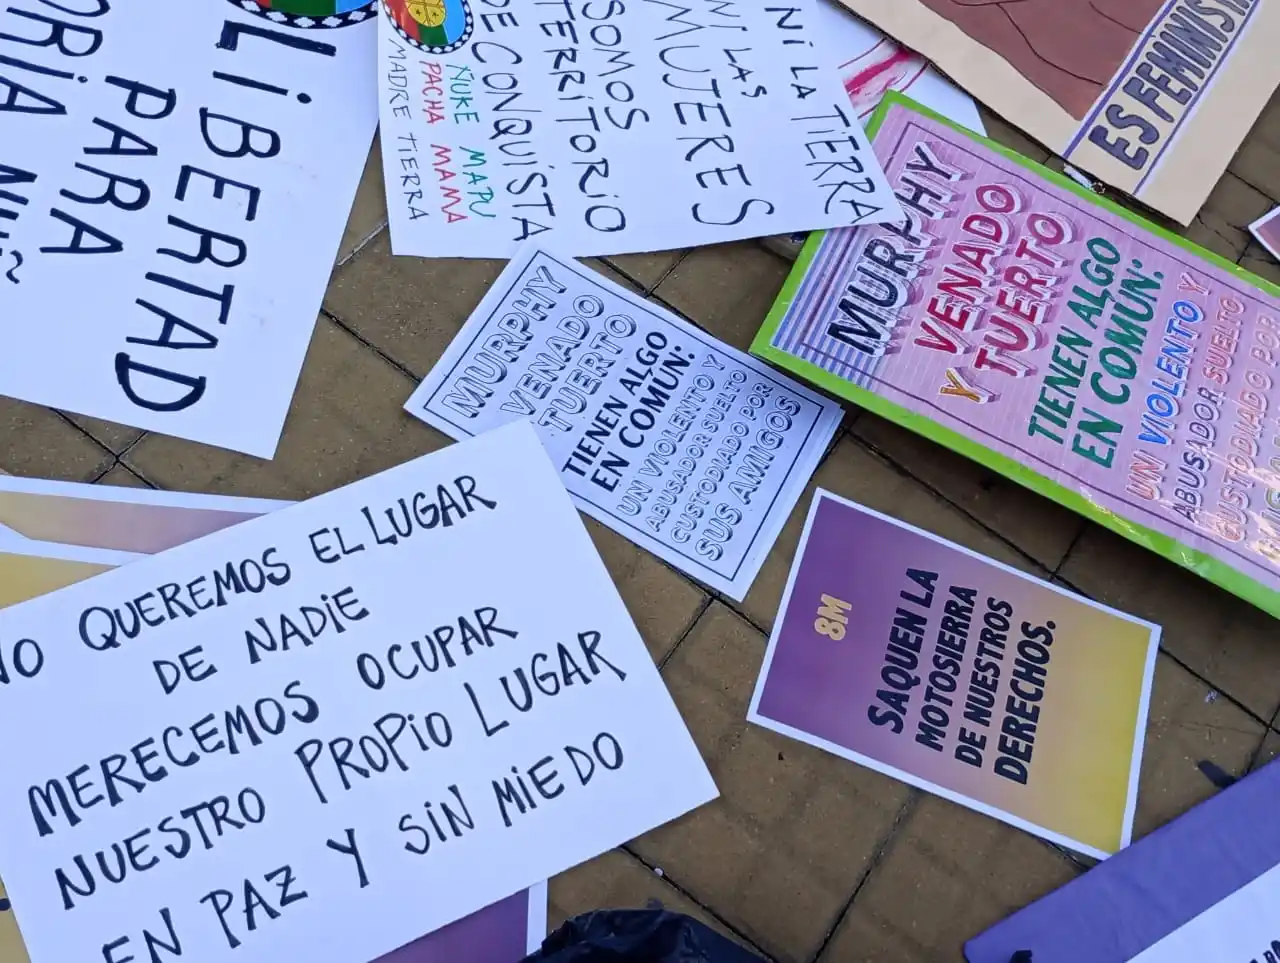 LIBERTAD
PARA
NI LA TIERRA
NI LAS
MUJERES
SOMOS
TERRITORIO
DE CONQUISTA
ÑUKE MAPU
PACHA MAMA
MADRE TIERRA
ES FEMINISTA
MURPHY
VENADO
Y TUERTO
TIENEN ALGO
EN COMÚN:
UN VIOLENTO Y
ABUSADOR SUELTO
CUSTODIADO POR
MURPHY
VENADO
TUERTO
TIENEN ALGO
EN COMUN:
UN VIOLENTO Y
ABUSADOR SUELTO
CUSTODIADO POR
SUS AMIGOS
8M
SAQUEN LA
MOTOSIERRA
DE NUESTROS
DERECHOS.
NO QUEREMOS EL LUGAR
DE NADIE
MERECEMOS OCUPAR
NUESTRO PROPIO LUGAR
EN PAZ Y SIN MIEDO